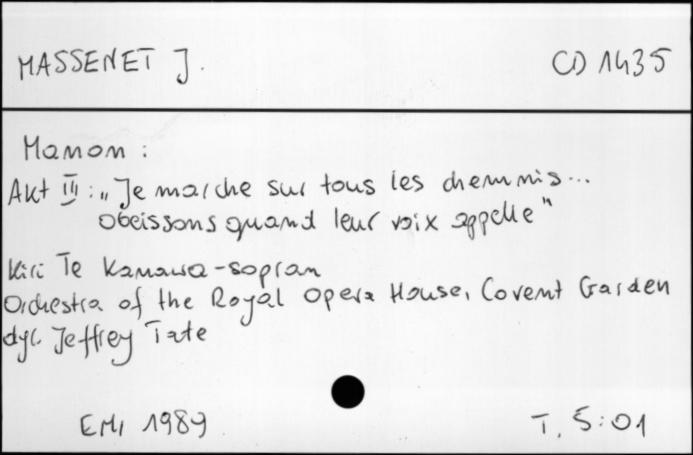 MASSENET J. CD 1435
Manon:
Akt III: „Je marche sur tous les chemmis...
obeissons quand leur voix appelle"
Kiri Te Kanawa - sopran
Orchestra of the Royal Opera House, Covent Garden
dyr. Jeffrey Tate
EMI 1989 T. 5:01